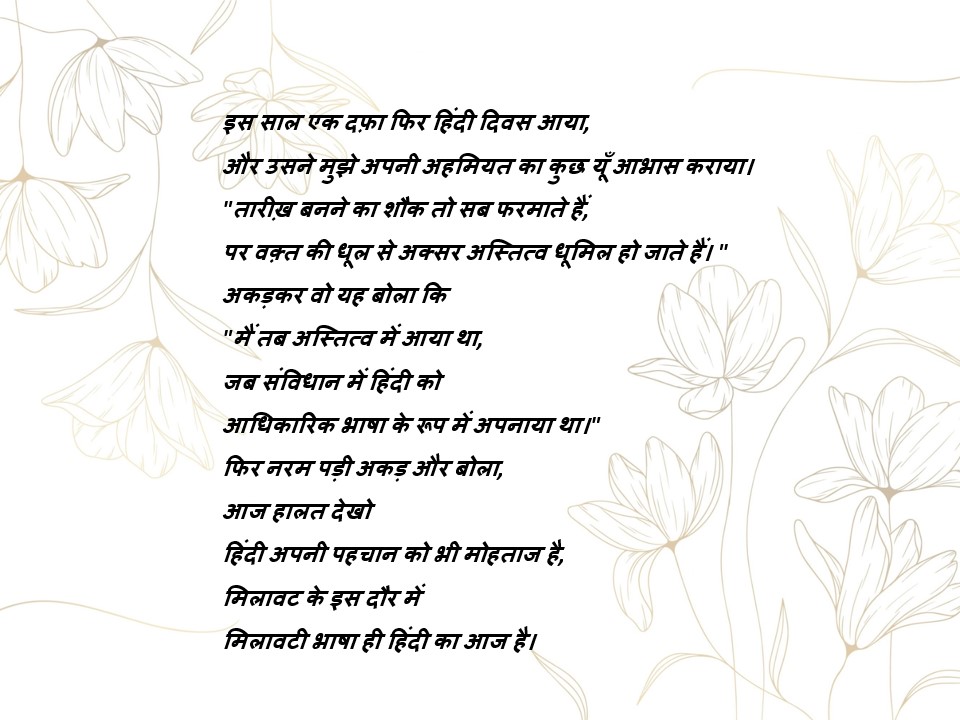 इस साल एक दफ़ा फिर हिंदी दिवस आया,
और उसने मुझे अपनी अहमियत का कुछ यूँ आभास कराया।
"तारीख़ बनने का शौक तो सब फरमाते हैं,
पर वक़्त की धूल से अक्सर अस्तित्व धूमिल हो जाते हैं। "
अकड़कर वो यह बोला कि
"मैं तब अस्तित्व में आया था,
जब संविधान में हिंदी को
आधिकारिक भाषा के रूप में अपनाया था।"
फिर नरम पड़ी अकड़ और बोला,
आज हालत देखो
हिंदी अपनी पहचान को भी मोहताज है,
मिलावट के इस दौर में
मिलावटी भाषा ही हिंदी का आज है।